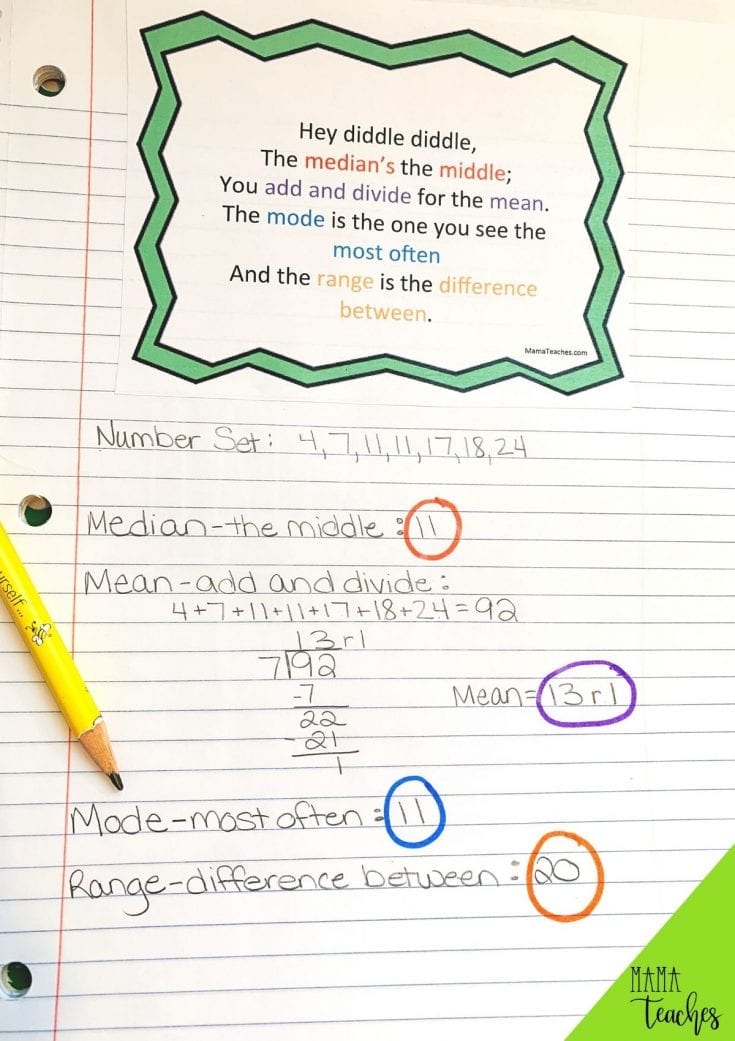 Hey diddle diddle,
The median's the middle;
You add and divide for the mean.
The mode is the one you see the
most often
And the range is the difference
between.
MamaTeaches.com
Number Set: 4, 7, 11, 11, 17, 18, 24
Median - the middle : 11
Mean - add and divide :
4+7+11+11+17+18+24=92
13 r 1
7 92
-7
22
- 21
1
Mean= 13 r 1
Mode - most often : 11
Range - difference between : 20
rself...
MAMA
Teaches